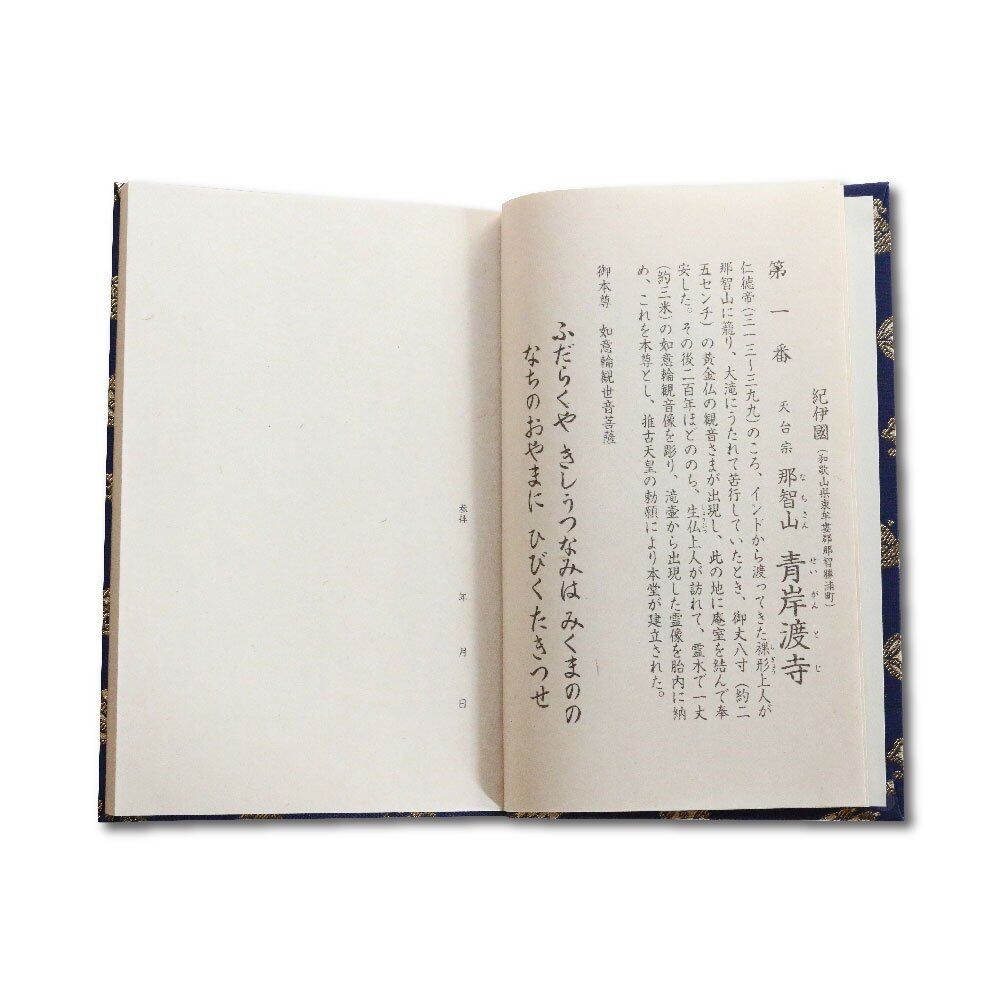 第一番
紀伊國(和歌山県東牟婁郡那智勝浦町)
天台宗 那智山 青岸渡寺
なちさん せいがんとじ
仁徳帝(三一三〜三九九)のころ、インドから渡ってきた裸形上人が
らぎょう
那智山に籠り、大滝にうたれて苦行していたとき、御丈八寸(約二
五センチ)の黄金仏の観音さまが出現し、此の地に庵室を結んで奉
安した。その後二百年ほどののち、生仏上人が訪れて、霊水で一丈
しょうぶつ
(約三米)の如意輪観音像を彫り、滝壷から出現した霊像を胎内に納
め、これを本尊とし、推古天皇の勅願により本堂が建立された。
御本尊 如意輪観世音菩薩
ふだらくや きしうつなみは みくまのの
なちのおやまに ひびくたきつせ
奉拝 年 月 日